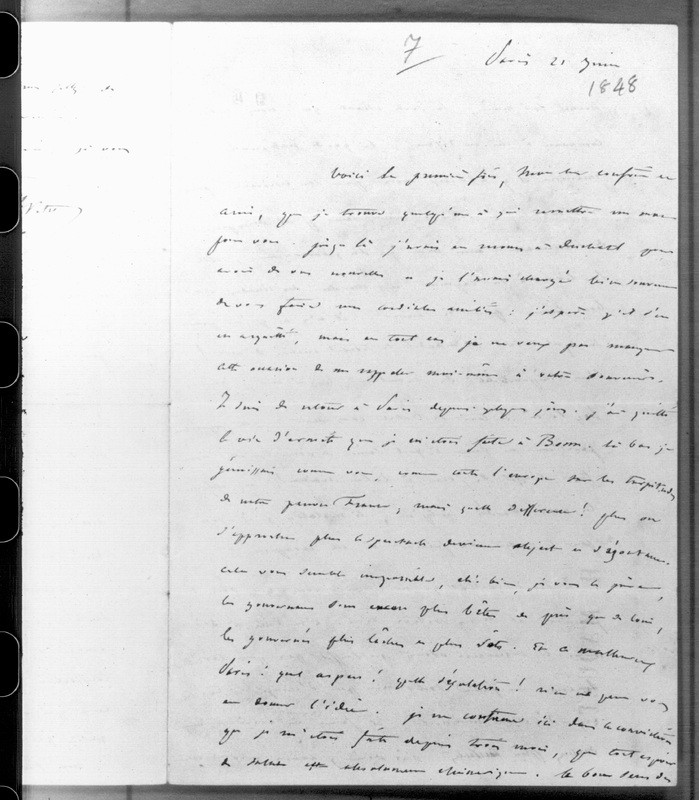 7
Paris 21 juin
1848
vous
Voici la première fois, mon cher confrère et
ami, que je trouve quelqu'un à qui remettre un mot
pour vous. jusque là j'avais au moins à Duchatel pour
avoir de vos nouvelles et je l'avais chargé bien souvent
de vous faire mes cordiales amitiés : j'espère qu'il s'en
est acquitté, mais en tout cas je ne veux pas manquer
cette occasion de me rappeler moi-même à votre souvenir.
Je suis de retour à Paris depuis quelques jours. j'ai quitté
la vie d'ermite que je m'étais faite à Bosm. là bas je
gémissais comme vous, comme toute l'europe sur les turpitudes
de notre pauvre France ; mais quelle différence ! plus on
s'approche plus le spectacle devient abject et dégoutant.
cela vous semble impossible, eh! bien, je vous le jure,
les gouvernans sont encore plus bêtes de près que de loin,
les gouvernés plus lâches et plus sots. Et ce malheureux
Paris ! quel aspect ! quelle désolation ! rien ne peut vous
en donner l'idée. je me confirme ici dans la conviction
que je m'étais faite depuis trois mois, que tout espoir
de salut est absolument chimérique. le bon sens des